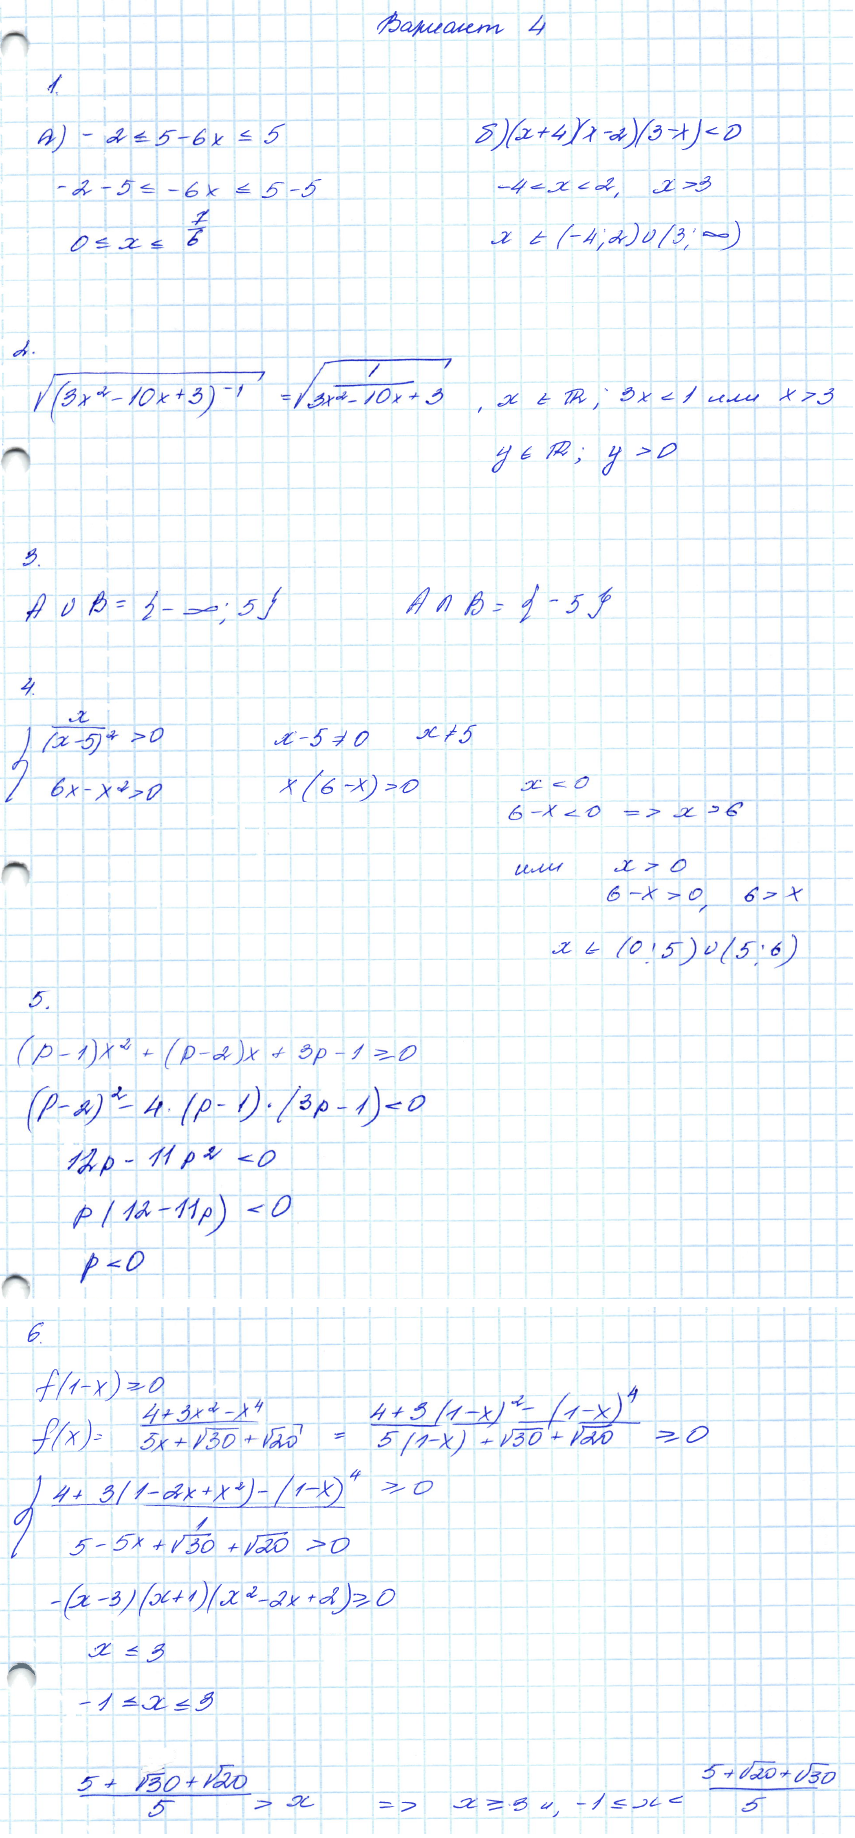 Вариант 4
1.
а) -2 ≤ 5-6x ≤ 5
-2-5 ≤ -6x ≤ 5-5
0 ≤ x ≤ 7/6
б) (x+4)(x-2)(3-x)<0
-4<x<2, x>3
x ∈ (-4;2)∪(3;∞)
2.
√((3x²-10x+3)⁻¹) = √(1/(3x²-10x+3)), x ∈ ℝ; 3x<1 или x>3
y ∈ ℝ; y>0
3.
A ∪ B = {-∞; 5} A ∩ B = {-5}
4.
{ x/(x-5)² >0 x-5≠0 x≠5
6x-x²>0 x(6-x)>0 x<0
6-x<0 => x>6
или x>0
6-x>0, 6>x
x ∈ (0;5)∪(5;6)
5.
(p-1)x² + (p-2)x + 3p-1 ≥0
(p-2)² - 4·(p-1)·(3p-1)<0
12p-11p² <0
p(12-11p) <0
p<0
6.
f(1-x)≥0
f(x)= (4+3x²-x⁴)/(5x+√30+√20) = (4+3(1-x)²-(1-x)⁴)/(5(1-x)+√30+√20) ≥0
{ (4+3(1-2x+x²)-(1-x)⁴)/1 ≥0
5-5x+√30+√20 >0
-(x-3)(x+1)(x²-2x+2)≥0
x ≤ 3
-1 ≤ x ≤ 3
(5+√30+√20)/5 > x => x≥3 и, -1≤x< (5+√20+√30)/5